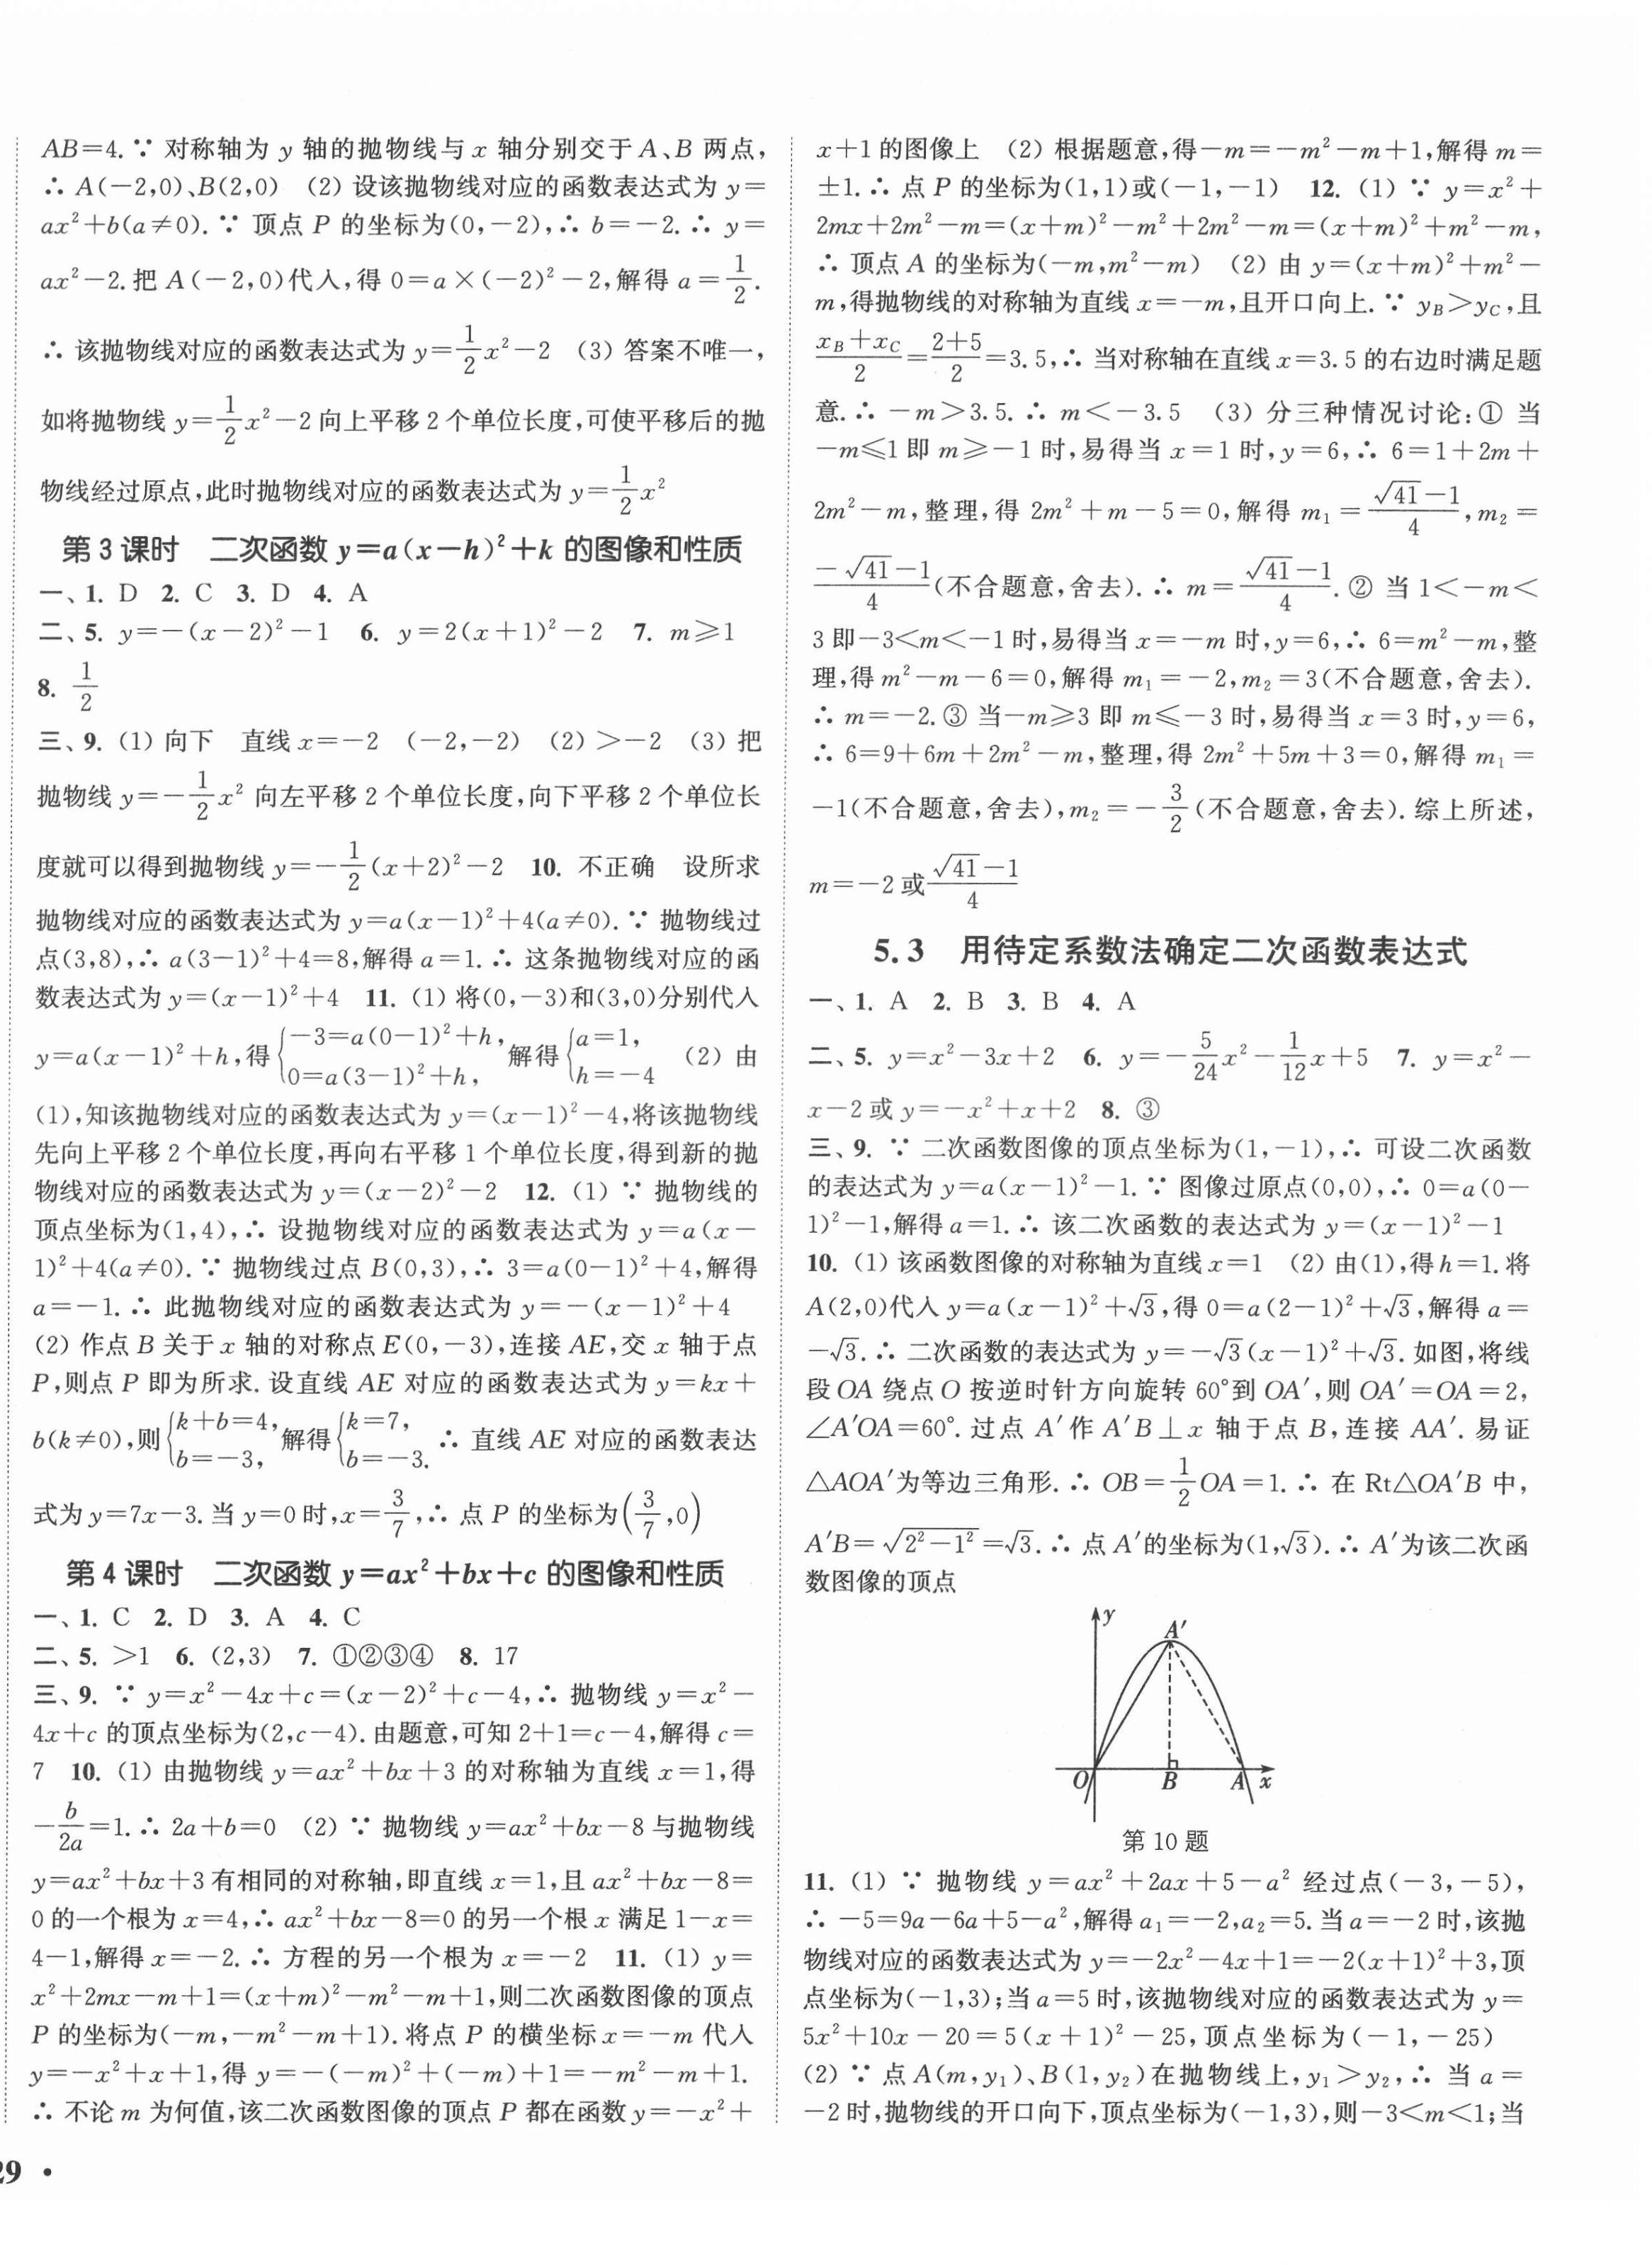 AB=4.∵ 对称轴为 y 轴的抛物线与 x 轴分别交于 A、B 两点,
∴ A(-2,0)、B(2,0) (2) 设该抛物线对应的函数表达式为 y=
ax²+b(a≠0).∵ 顶点 P 的坐标为(0,-2),∴ b=-2.∴ y=
ax²-2.把 A(-2,0)代入,得 0=a×(-2)²-2,解得 a=1/2.
∴ 该抛物线对应的函数表达式为 y=1/2x²-2 (3) 答案不唯一,
如将抛物线 y=1/2x²-2 向上平移 2 个单位长度,可使平移后的抛
物线经过原点,此时抛物线对应的函数表达式为 y=1/2x²
第 3 课时 二次函数 y=a(x-h)²+k 的图像和性质
一、1. D 2. C 3. D 4. A
二、5. y=-(x-2)²-1 6. y=2(x+1)²-2 7. m≥1
8. 1/2
三、9. (1) 向下 直线 x=-2 (-2,-2) (2) >-2 (3) 把
抛物线 y=-1/2x² 向左平移 2 个单位长度,向下平移 2 个单位长
度就可以得到抛物线 y=-1/2(x+2)²-2 10. 不正确 设所求
抛物线对应的函数表达式为 y=a(x-1)²+4(a≠0).∵ 抛物线过
点(3,8),∴ a(3-1)²+4=8,解得 a=1.∴ 这条抛物线对应的函
数表达式为 y=(x-1)²+4 11. (1) 将(0,-3)和(3,0)分别代入
y=a(x-1)²+h,得{-3=a(0-1)²+h, 0=a(3-1)²+h, 解得{a=1, h=-4 (2) 由
(1),知该抛物线对应的函数表达式为 y=(x-1)²-4,将该抛物线
先向上平移 2 个单位长度,再向右平移 1 个单位长度,得到新的抛
物线对应的函数表达式为 y=(x-2)²-2 12. (1) ∵ 抛物线的
顶点坐标为(1,4),∴ 设抛物线对应的函数表达式为 y=a(x-
1)²+4(a≠0).∵ 抛物线过点 B(0,3),∴ 3=a(0-1)²+4,解得
a=-1.∴ 此抛物线对应的函数表达式为 y=-(x-1)²+4
(2) 作点 B 关于 x 轴的对称点 E(0,-3),连接 AE,交 x 轴于点
P,则点 P 即为所求.设直线 AE 对应的函数表达式为 y=kx+
b(k≠0),则{k+b=4, b=-3, 解得{k=7, b=-3. ∴ 直线 AE 对应的函数表达
式为 y=7x-3.当 y=0 时,x=3/7,∴ 点 P 的坐标为(3/7,0)
第 4 课时 二次函数 y=ax²+bx+c 的图像和性质
一、1. C 2. D 3. A 4. C
二、5. >1 6. (2,3) 7. ①②③④ 8. 17
三、9. ∵ y=x²-4x+c=(x-2)²+c-4,∴ 抛物线 y=x²-
4x+c 的顶点坐标为(2,c-4).由题意,可知 2+1=c-4,解得 c=
7 10. (1) 由抛物线 y=ax²+bx+3 的对称轴为直线 x=1,得
-b/2a=1.∴ 2a+b=0 (2) ∵ 抛物线 y=ax²+bx-8 与抛物线
y=ax²+bx+3 有相同的对称轴,即直线 x=1,且 ax²+bx-8=
0 的一个根为 x=4,∴ ax²+bx-8=0 的另一个根 x 满足 1-x=
4-1,解得 x=-2.∴ 方程的另一个根为 x=-2 11. (1) y=
x²+2mx-m+1=(x+m)²-m²-m+1,则二次函数图像的顶点
P 的坐标为(-m,-m²-m+1).将点 P 的横坐标 x=-m 代入
y=-x²+x+1,得 y=-(-m)²+(-m)+1=-m²-m+1.
∴ 不论 m 为何值,该二次函数图像的顶点 P 都在函数 y=-x²+
29 •
x+1 的图像上 (2) 根据题意,得-m=-m²-m+1,解得 m=
±1.∴ 点 P 的坐标为(1,1)或(-1,-1) 12. (1) ∵ y=x²+
2mx+2m²-m=(x+m)²-m²+2m²-m=(x+m)²+m²-m,
∴ 顶点 A 的坐标为(-m,m²-m) (2) 由 y=(x+m)²+m²-
m,得抛物线的对称轴为直线 x=-m,且开口向上.∵ y_B>y_C,且
(x_B+x_C)/2=(2+5)/2=3.5,∴ 当对称轴在直线 x=3.5 的右边时满足题
意.∴ -m>3.5.∴ m<-3.5 (3) 分三种情况讨论:① 当
-m≤1 即 m≥-1 时,易得当 x=1 时,y=6,∴ 6=1+2m+
2m²-m,整理,得 2m²+m-5=0,解得 m₁=(√41-1)/4,m₂=
(-√41-1)/4(不合题意,舍去).∴ m=(√41-1)/4.② 当 1<-m<
3 即-3<m<-1 时,易得当 x=-m 时,y=6,∴ 6=m²-m,整
理,得 m²-m-6=0,解得 m₁=-2,m₂=3(不合题意,舍去).
∴ m=-2.③ 当-m≥3 即 m≤-3 时,易得当 x=3 时,y=6,
∴ 6=9+6m+2m²-m,整理,得 2m²+5m+3=0,解得 m₁=
-1(不合题意,舍去),m₂=-3/2(不合题意,舍去).综上所述,
m=-2 或(√41-1)/4
5.3 用待定系数法确定二次函数表达式
一、1. A 2. B 3. B 4. A
二、5. y=x²-3x+2 6. y=-5/24x²-1/12x+5 7. y=x²-
x-2 或 y=-x²+x+2 8. ③
三、9. ∵ 二次函数图像的顶点坐标为(1,-1),∴ 可设二次函数
的表达式为 y=a(x-1)²-1.∵ 图像过原点(0,0),∴ 0=a(0-
1)²-1,解得 a=1.∴ 该二次函数的表达式为 y=(x-1)²-1
10. (1) 该函数图像的对称轴为直线 x=1 (2) 由(1),得 h=1.将
A(2,0)代入 y=a(x-1)²+√3,得 0=a(2-1)²+√3,解得 a=
-√3.∴ 二次函数的表达式为 y=-√3(x-1)²+√3.如图,将线
段 OA 绕点 O 按逆时针方向旋转 60°到 OA′,则 OA′=OA=2,
∠A′OA=60°.过点 A′作 A′B⊥x 轴于点 B,连接 AA′.易证
△AOA′为等边三角形.∴ OB=1/2OA=1.∴ 在 Rt△OA′B 中,
A′B=√(2²-1²)=√3.∴ 点 A′的坐标为(1,√3).∴ A′为该二次函
数图像的顶点
y
A′
O B A x
第 10 题
11. (1) ∵ 抛物线 y=ax²+2ax+5-a² 经过点(-3,-5),
∴ -5=9a-6a+5-a²,解得 a₁=-2,a₂=5.当 a=-2 时,该抛
物线对应的函数表达式为 y=-2x²-4x+1=-2(x+1)²+3,顶
点坐标为(-1,3);当 a=5 时,该抛物线对应的函数表达式为 y=
5x²+10x-20=5(x+1)²-25,顶点坐标为(-1,-25)
(2) ∵ 点 A(m,y₁)、B(1,y₂)在抛物线上,y₁>y₂,∴ 当 a=
-2 时,抛物线的开口向下,顶点坐标为(-1,3),则-3<m<1;当